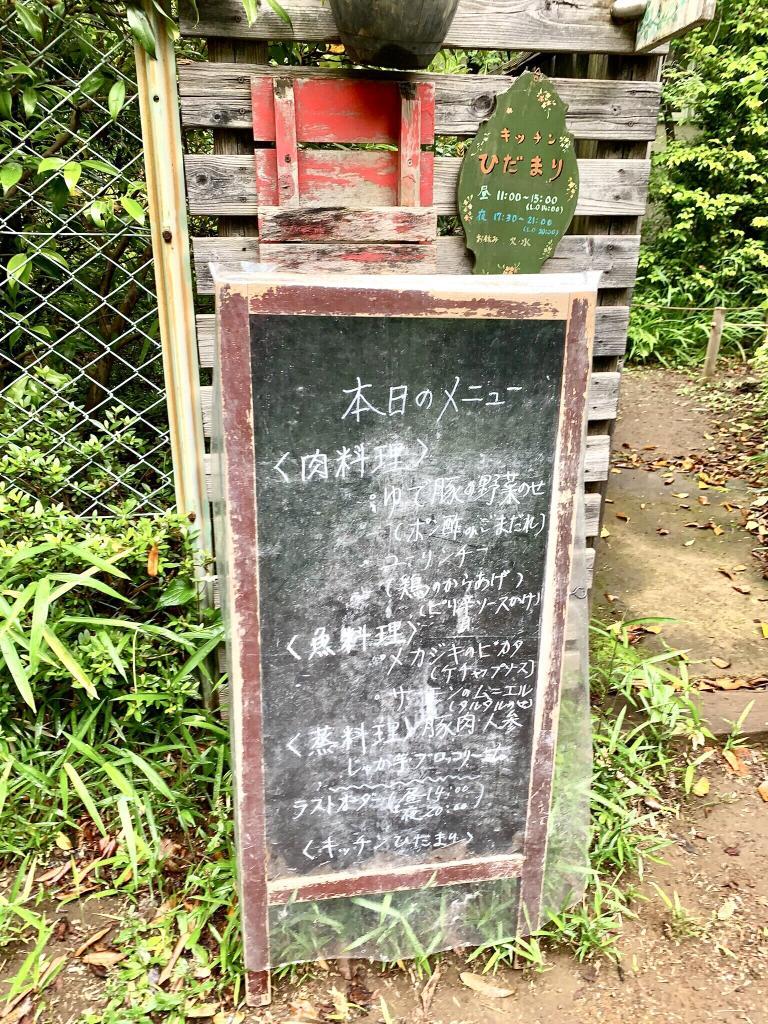 キッチン
ひだまり
昼 11:00~15:00
(L.O 14:00)
夜 17:30~21:00
(L.O 20:00)
お休み 火・水
本日のメニュー
〈肉料理〉
・ゆで豚の野菜のせ
(ポン酢 ごまだれ)
・ユーリンチー
(鶏のからあげ)
(ピリ辛ソースかけ)
〈魚料理〉
・メカジキのピカタ
(ケチャップソース)
・サーモンのムニエル
(タルタルのせ)
〈蒸料理〉豚肉 人参
じゃが芋 ブロッコリー
ラストオーダー(昼14:00
夜20:00)
〈キッチンひだまり〉